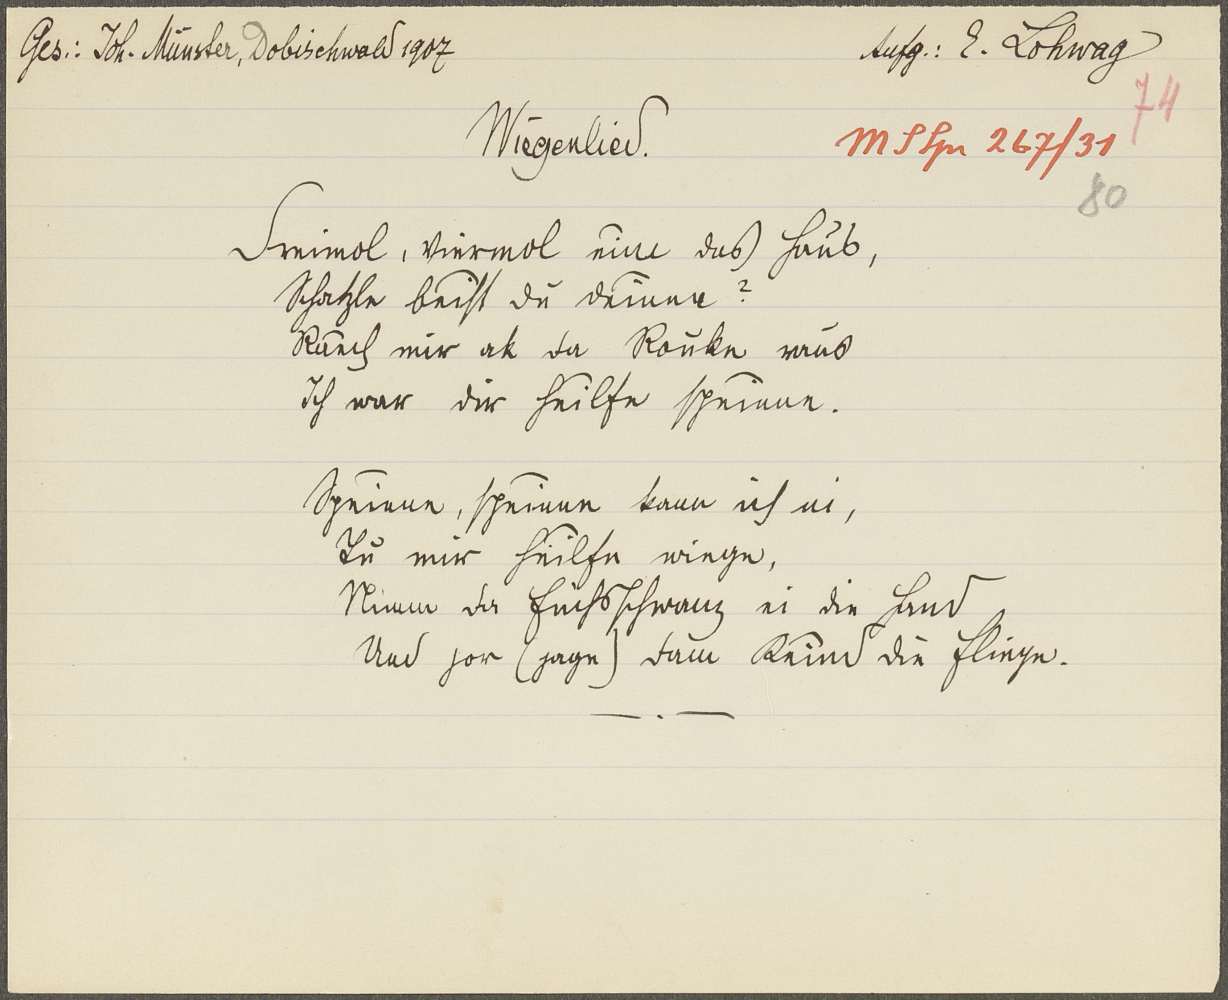 Ges.: Joh. Münster, Dobischwald 1907
Aufg.: E. Lohwag
74
Wiegenlied.
MS Spr 267/31
80
Dreimol, viermol eim das Haus,
Schatzle beist du deinna?
Raech mir ak da Roukn raus
Ich war dir heilfn speinnn.
Speinnn, speinnn kann ich ni,
Tu mir heilfn wiegn,
Nimm da Fuchsschwanz ei die Hand
Und jor (jagn) dam Keind die Fliegn.